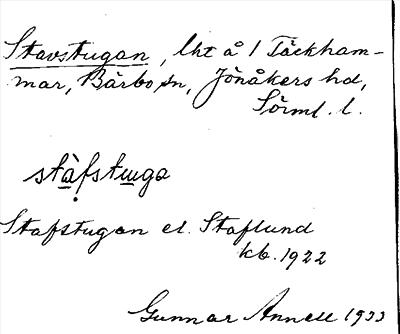 Stavstugan, lht å 1 Täckham-
mar, Bärbo sn, Jönåkers hd,
Sörml. l.
stàfstu̲ga
Stafstugan el. Staflund
kb. 1922
Gunnar Annell 1933